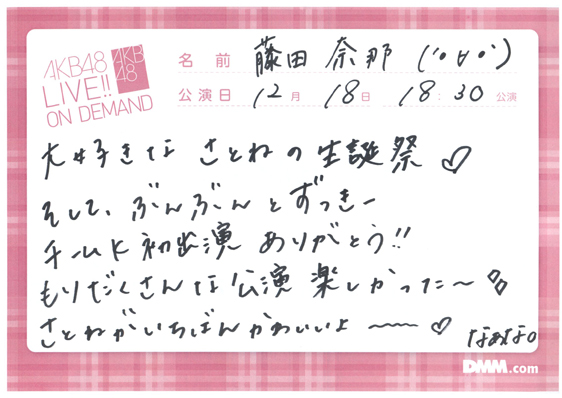 AKB48
LIVE!!
ON DEMAND
AKB
48
名前 藤田 奈那 ('•∀•`)
公演日 12月 18日 18:30公演
大好きな さとねの生誕祭♡
そして、ぶんぶんとずっきー
チームK初出演 ありがとう!!
もりだくさんな公演 楽しかった〜
さとねがいちばんかわいいよ 〜〜〜♡
なぁなo
DMM.com